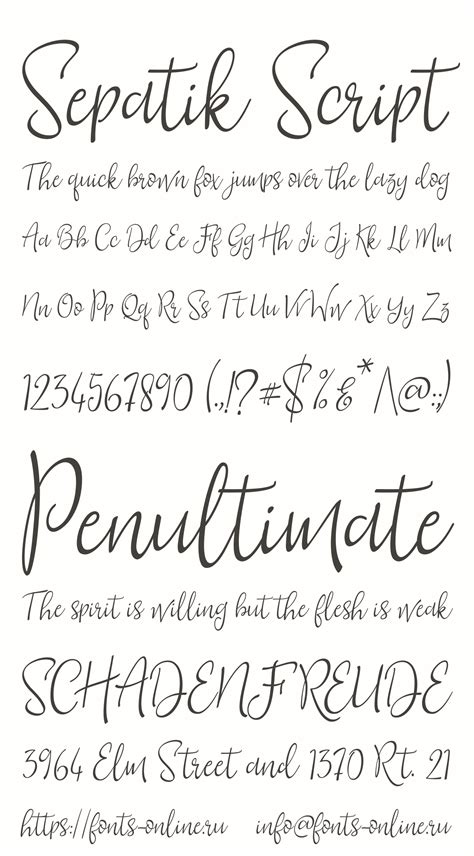 Sepatik Script
The quick brown fox jumps over the lazy dog
Aa Bb Cc Dd Ee Ff Gg Hh Ii Jj Kk Ll Mm
Nn Oo Pp Qq Rr Ss Tt Uu Vv Ww Xx Yy Zz
1234567890 (.,!?#$%&*/\@:;)
Penultimate
The spirit is willing but the flesh is weak
SCHADENFREUDE
3964 Elm Street and 1370 Rt. 21
https://fonts-online.ru info@fonts-online.ru